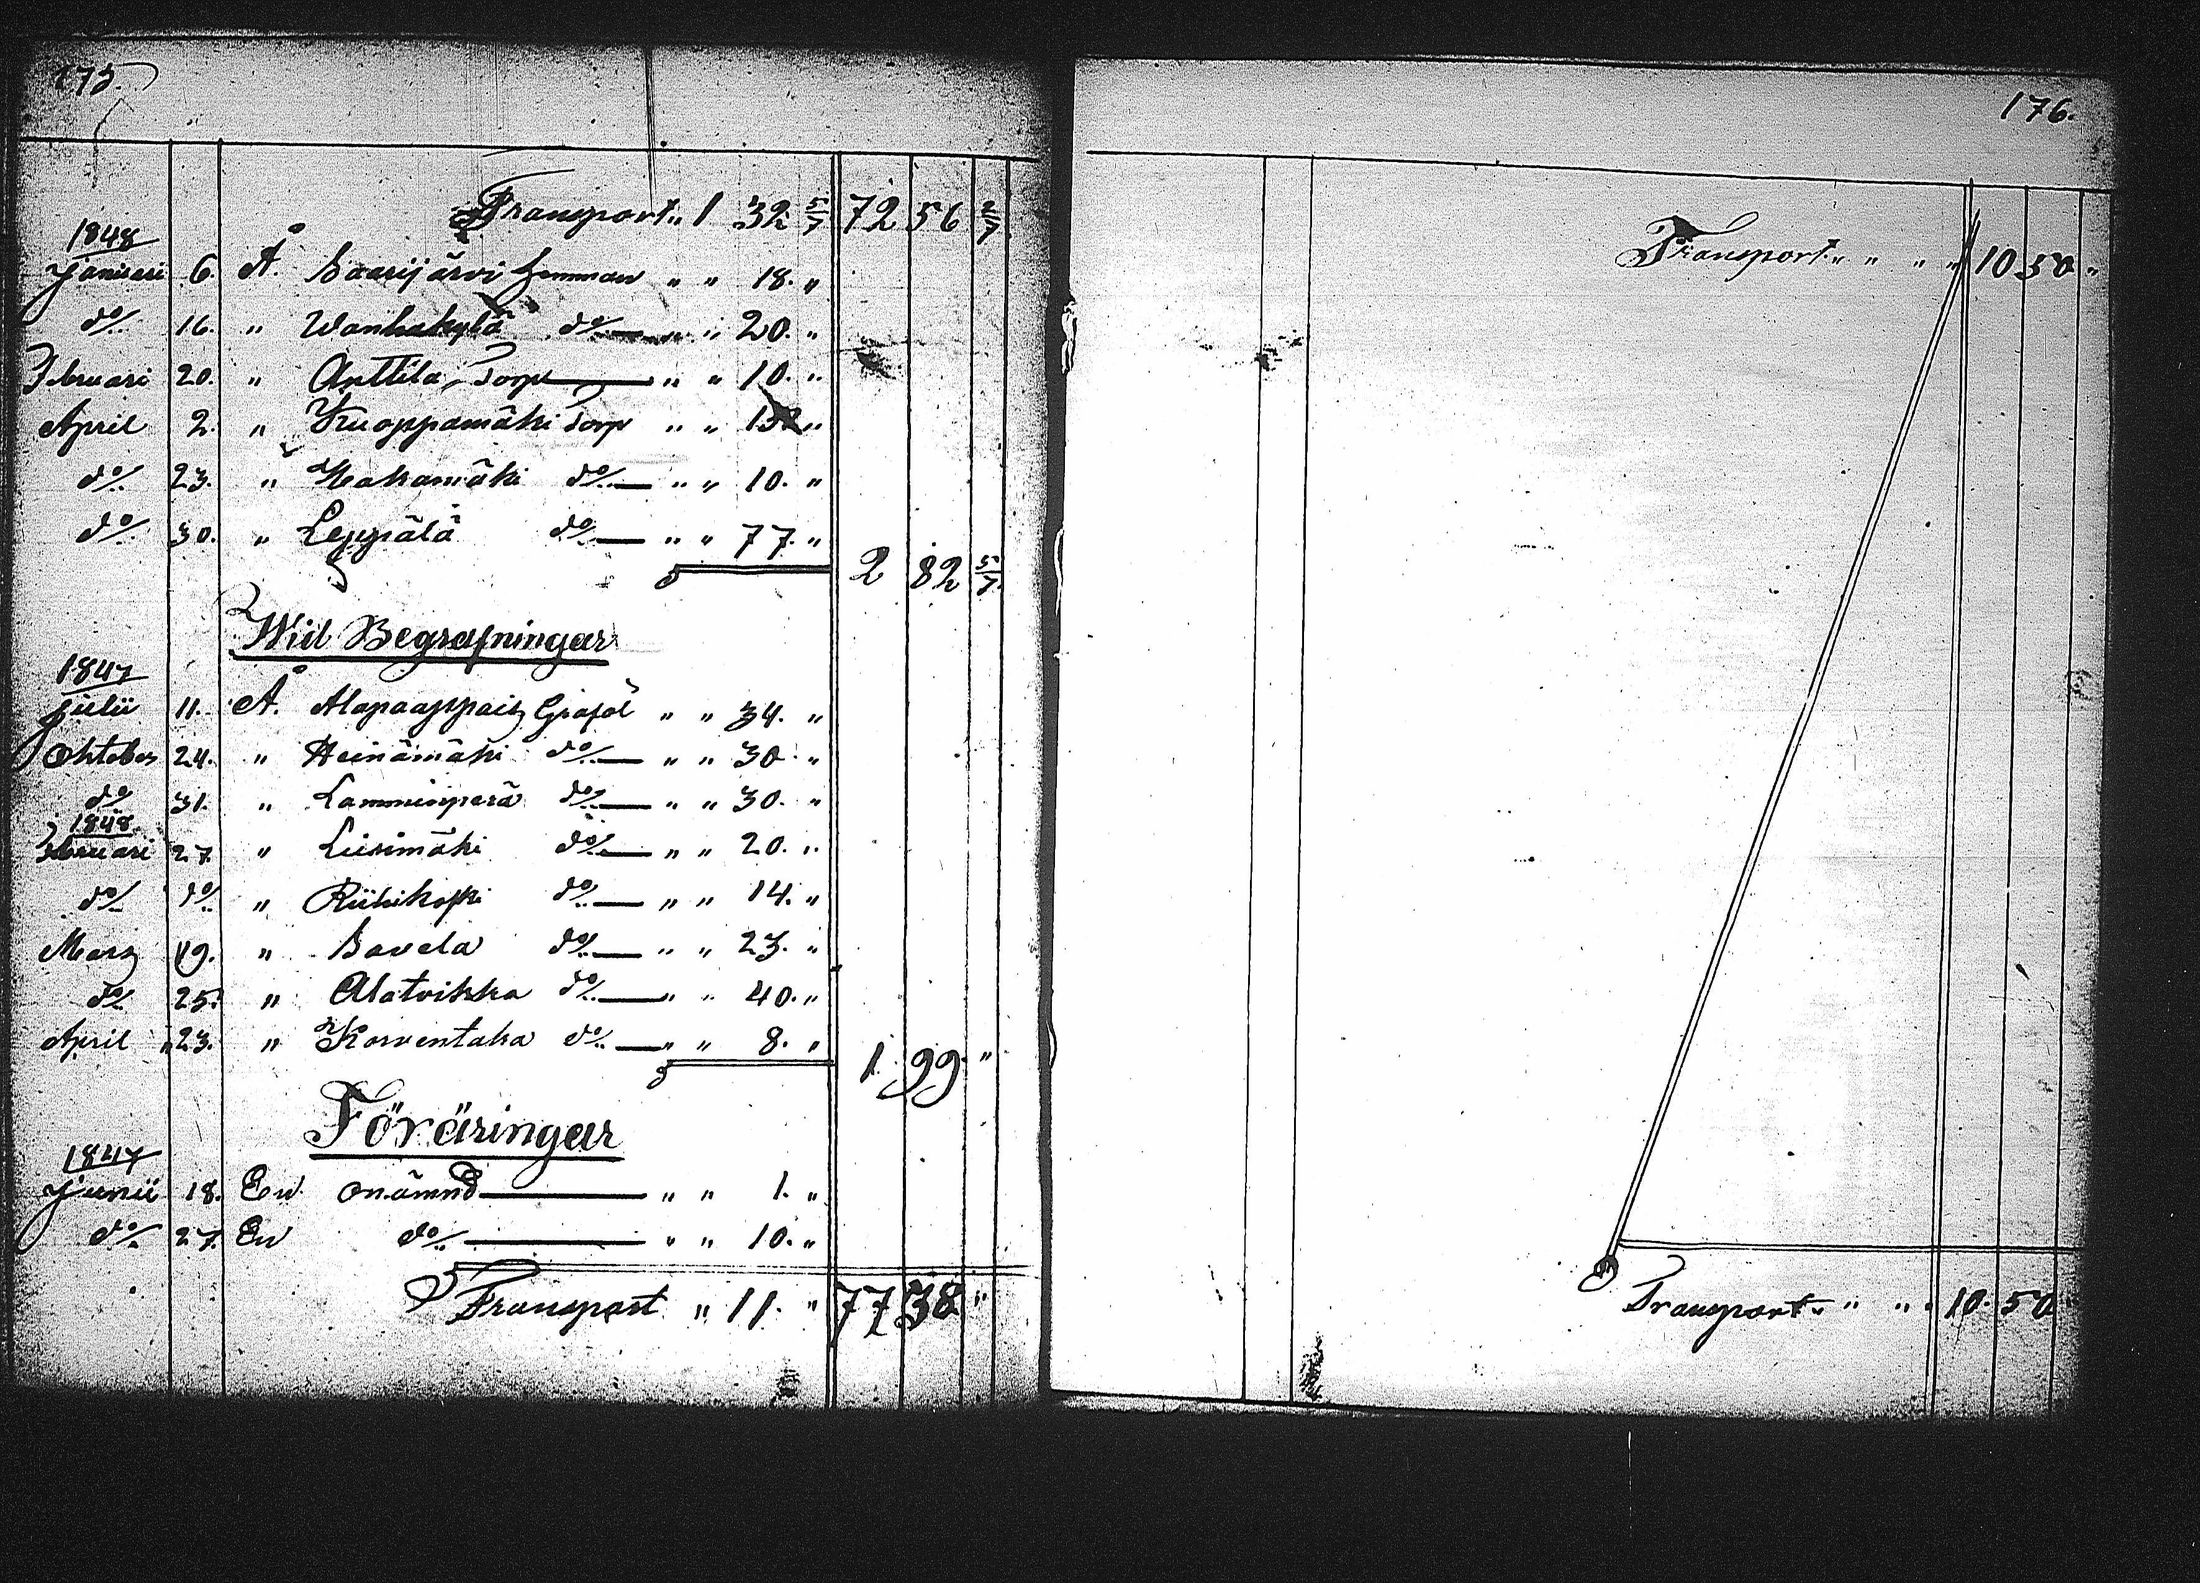 175.
Transport „ 1 32 5/7 72 56 2/7
1848
Januari 6. Å Saarijärvi hemman „ „ 18. „
do 16. „ Wanhakylä do — „ „ 20. „
Februari 20. „ Anttila Torp — „ „ 10. „
April 2. „ Kuoppamäki Torp „ „ „
do 23. „ Hakamäki do — „ „ 10. „
do 30. „ Leppälä do — „ „ 77. „
2 82 5/7
Wid Begrafningar
1847
Julii 11. Å Alapaappais Graföl „ „ 34. „
Oktober 24. „ Heinämäki do — „ „ 30. „
do 31. „ Lamminperä do — „ „ 30. „
1848
Februari 27 „ Liisimäki do — „ „ 20. „
do do „ Riihikoski do — „ „ 14. „
Mars 19. „ Savela do — „ „ 23. „
do 25. „ Alatvikka do — „ „ 40. „
April 23. „ Korventaka do — „ „ 8. „
1 99. „
Föräringar
1847
Junii 18. En onämnd — „ „ 1. „
do 27. En do — „ „ 10. „
Transport „ 11. „ 77 38 „
176.
Transport „ „ „ „ 10 50 „
Transport „ „ „ „ 10. 50